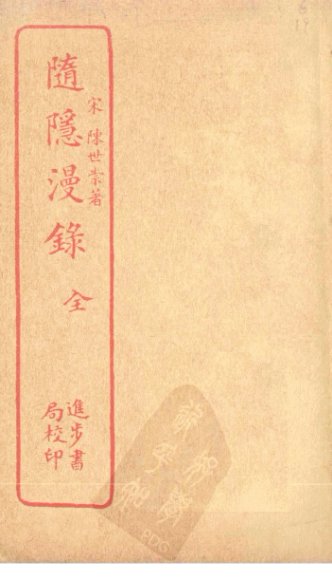 宋 陳世崇著
隨隱漫錄 全
進步書
局校印